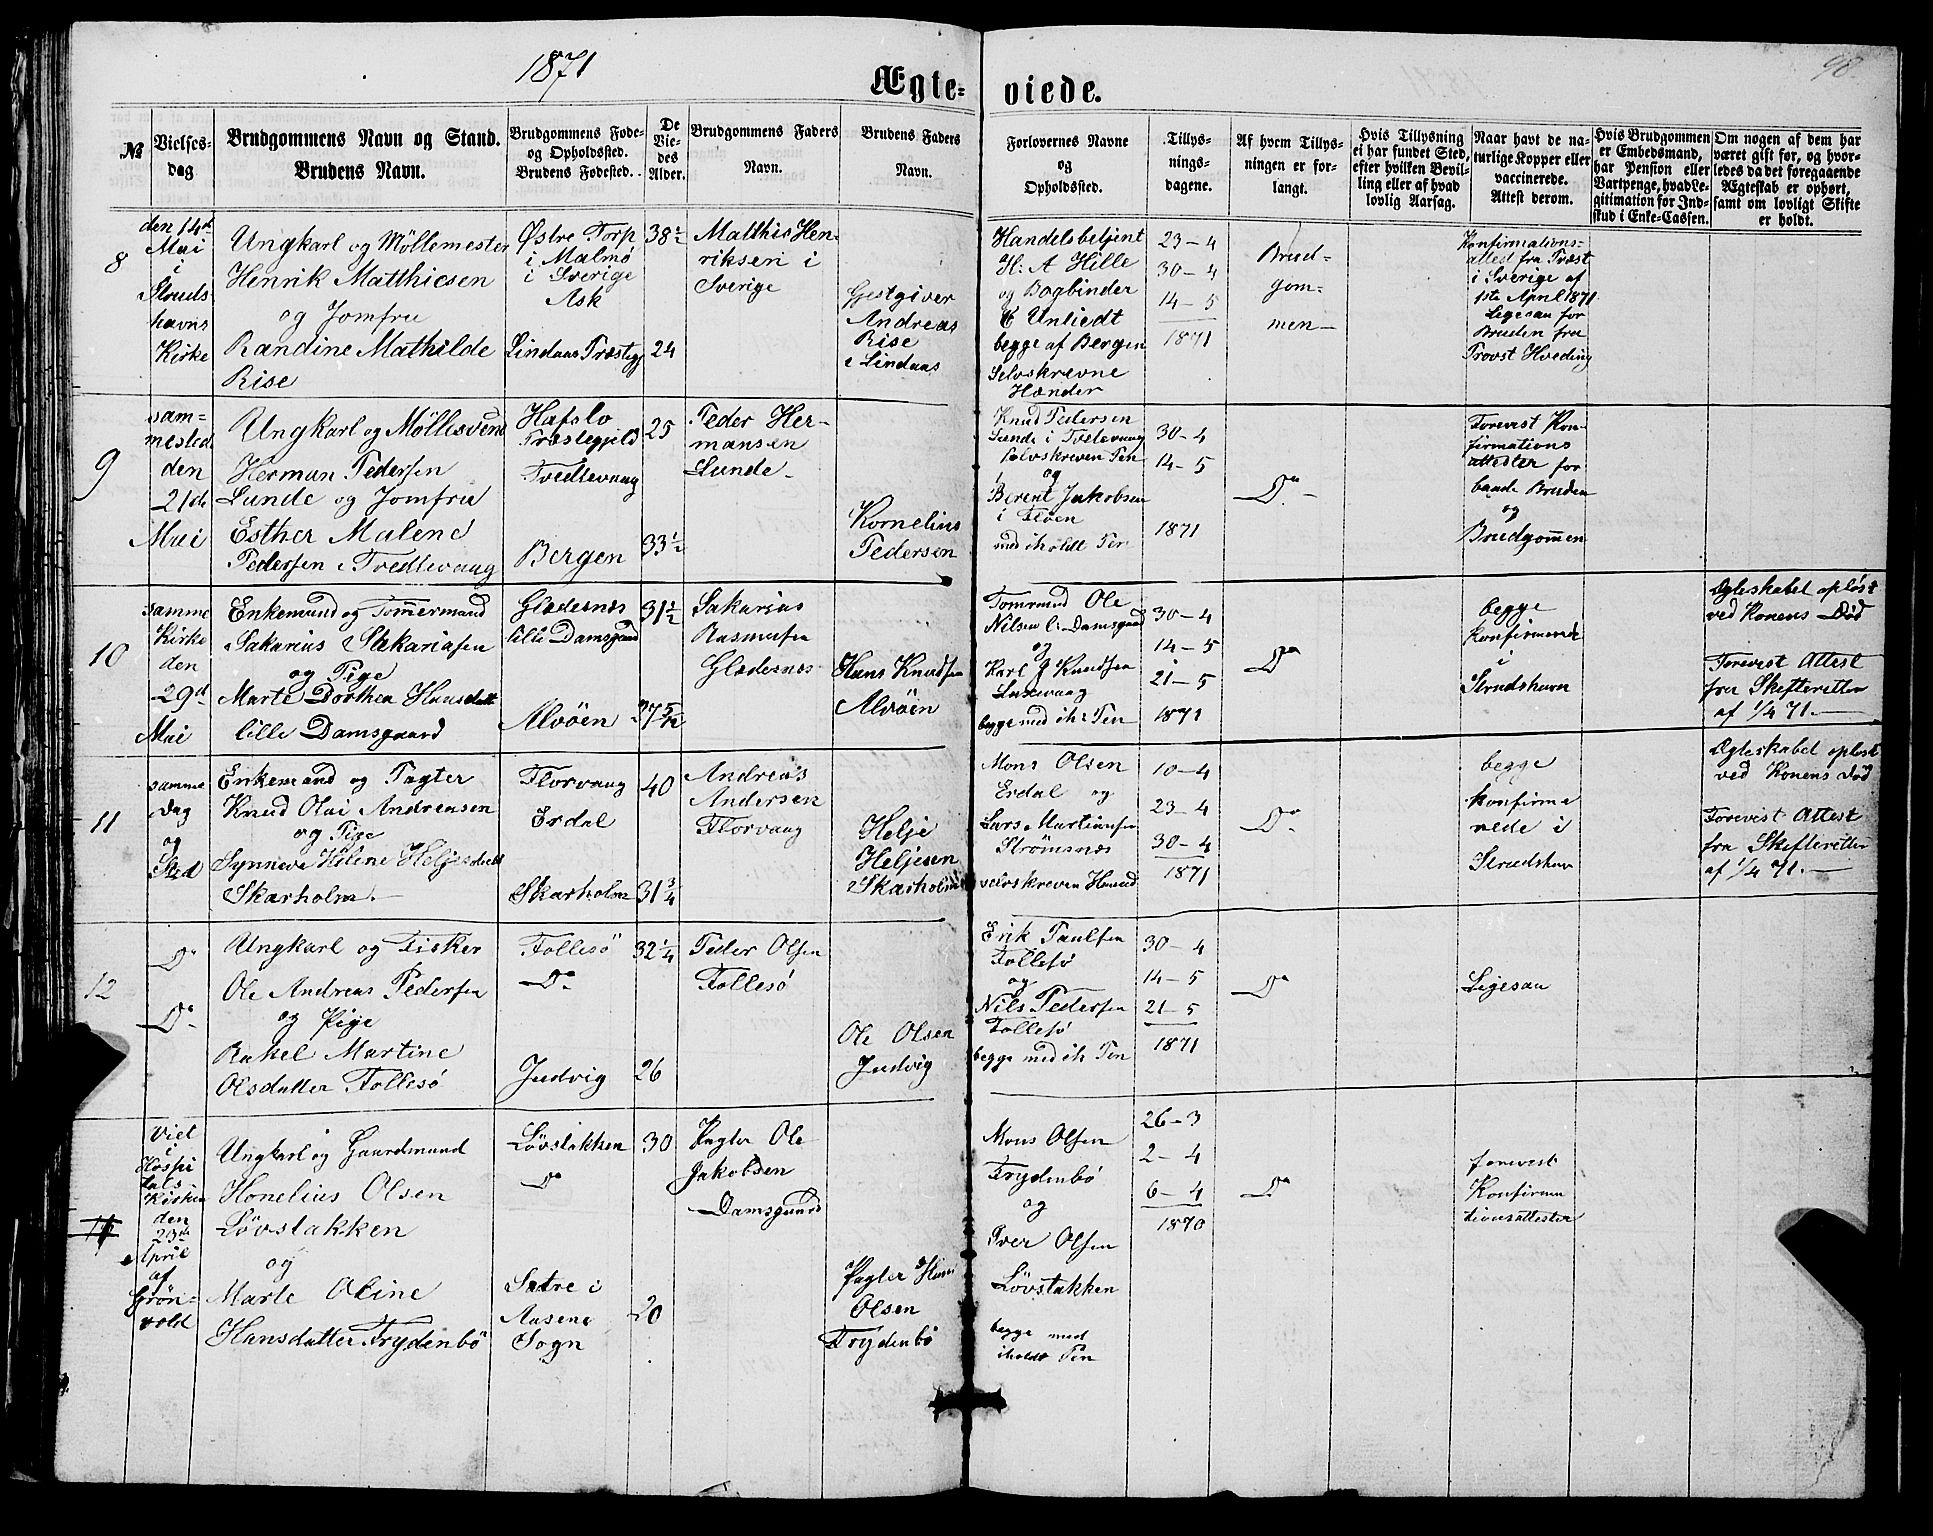 1871
98.
Ægte- viede.
№
Vielses-
dag
Brudgommens Navn og Stand.
Brudens Navn.
Brudgommens Føde-
og Opholdssted.
Brudens Fødested.
De
Vie-
des
Alder.
Brudgommens Faders
Navn.
Brudens Faders
Navn.
Forlovernes Navne
og
Opholdssted.
Tillys-
nings-
dagene.
Af hvem Tillys-
ningen er for-
langt.
Hvis Tillysning
ei har fundet Sted,
efter hvilken Bevil-
ling eller af hvad
lovlig Aarsag.
Naar havt de na-
turlige Kopper eller
vaccinerede.
Attest derom.
Hvis Brudgommen
er Embedsmand,
har Pension eller
Vartpenge, hvad Le-
gitimation for Ind-
skud i Enke-Cassen.
Om nogen af dem har
været gift før, og hvor-
ledes da det foregaaende
Ægteskab er ophørt,
samt om lovligt Skifte
er holdt.
8
den 14de
Mai
i
Struds
havns
Kirke
Ungkarl og Møllemester
Henrik Matthiesen
og Jomfru
Randine Mathilde
Rise
Østre Torp
i Malmø
i Sverige
Ask
Lindaas Præstegj
38½
24
Matthis Hen-
riksen i
Sverige
Gjestgiver
Andreas
Rise
i Lindaas
Handelsbetjent
H: A Hille
og Bogbinder
Unliedt
begge af Bergen
Selvskrevne
Hænder
23-4
30-4
14-5
1871
Brud-
gom-
men-
Konfirmations-
attest fra Præst
i Sverige af
1ste April 1871
Ligesaa for
Bruden fra
Provst Hveding
9
sam-
mested
den
21de
Mai
Ungkarl og Møllesvend
Herman Pedersen
Lunde og Jomfru
Esther Malene
Pedersen i Fredlevaag
Hafslo
Præstegjeld
Fredlevaag
Bergen
25
33½
Peder Her-
mansen
Lunde-
Kornelius
Pedersen
Knud Pedersen
Lunde i Fredlevaag
selvskreven Pen
og
Berent Jakobsen
i Floen
med iholdt Pen
30-4
14-5
1871
Do-
Forevist Kon-
firmations
attester for
baade Bruden
og
Brudgommen
10
samme
Kirke
den
29d
Mai
Enkemand og Tømmermand
Sakarius Sakariasen
og Pige
Marte Dorthea Hansdatt
lille Damsgaard
Gladesnes
lille Damsgaard
Alvøen
31½
27 5/12
Sakarias
Rasmusen
Gladesnes
Hans Knudsen
Alvøen
Tømrmand Ole
Nilsen l: Damsgaard
og
Karl J Knudsen
Laxevaag
begge med ih: Pen
30-4
14-5
21-5
1871
Do
begge
konfirmerede
i
Strudshavn
Ægteskabet opløst
ved Konens Død
Forevist Attest
fra Skifteretten
af 1/4 71.-
11
samme
Dag
og
Sted
Enkemand og Pagter
Knud Olai Andreasen
og Pige
Synneva Helene Heljesdatt
Skarholm.-
Florvaag
Erdal
Skarholm
40
31¾
Andreas
Andersen
Florvaag
Helje
Heljesen
Skarholm
Mons Olsen
Erdal og
Lars Martinsen
Strømsnes
selvskreven Haand
10-4
23-4
30-4
1871
Do-
begge
konfirme
rede i
Strudshavn
Ægteskabet opløst
ved Konens Død
Forevist Attest
fra Skifteretten
af 1/4 71.-
12
Do
Do
Ungkarl og Fisker
Ole Andreas Pedersen
og Pige
Rakel Martine
Olsdatter Follesø
Follesø
Do-
Judvig
32¼
26
Peder Olsen
Follesø
Ole Olsen
Judvig
Erik Paulsen
Follesø
og
Nils Pedersen
Follesø
begge med ih Pen
30-4
14-5
21-5
1871
Do
Ligesaa
Viet
i
Hospi
tals-
Kirken
den
23de
April
af
Grøn-
vold
Ungkarl og Gaardmand
Honelius Olsen
Løvstakken
og
Marte Oline
Hansdatter Frydenbø
Løvstakken
Do
Satre i
Aasene
Sogn
30
20
Pagter Ole
Jakobsen
Damsgaard
Pagter Hans
Olsen
Frydenbø
Mons Olsen
Frydenbø
og
Iver Olsen
Løvstakken
begge med
iholdt Pen
26-3
2-4
6-4
1870
Do
forevist
Konfirma
tionsattester